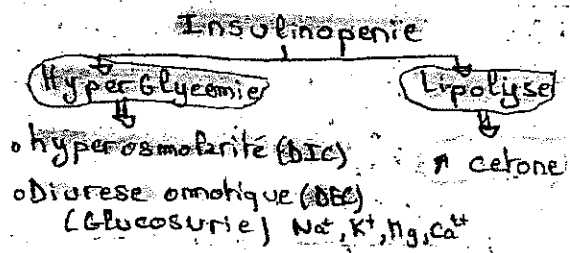 Insulinopenie
HyperGlycemie Lipolyse
hyperosmolarité (DIC) ↗ cetone
Diurese osmotique (DEC)
(Glucosurie) Na+, K+, Mg, Ca++